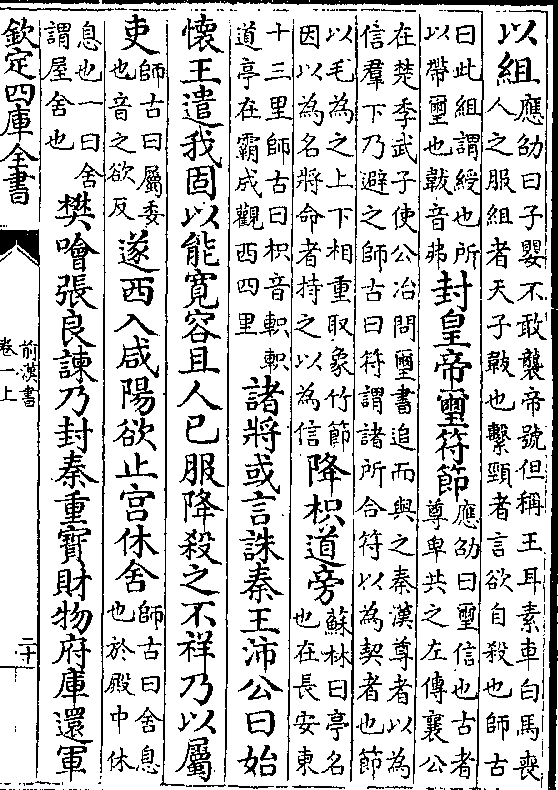 以組
應劭曰子嬰不敢襲帝號但稱王耳素車白馬喪
人之服組者天子韍也繫頸者言欲自殺也師古
曰此組謂綬也所
以帶璽也韍音弗
封皇帝璽符節
應劭曰璽信也古者
尊卑共之左傳襄公
在楚季武子使公冶問璽書追而與之秦漢尊者以為
信羣下乃避之師古曰符謂諸所合符以為契者也節
以毛為之上下相重取象竹節
因以為名將命者持之以為信
降枳道旁
蘇林曰亭名
也在長安東
十三里師古曰枳音軹軹
道亭在霸成觀西四里
諸將或言誅秦王沛公曰始
懷王遣我固以能寛容且人已服降殺之不祥乃以屬
吏
師古曰屬委
也音之欲反
遂西入咸陽欲止宫休舍
師古曰舍息
也於殿中休
息也一曰舍
謂屋舍也
樊噲張良諫乃封秦重寳財物府庫還軍
欽定四庫全書
前漢書
卷一上
二十